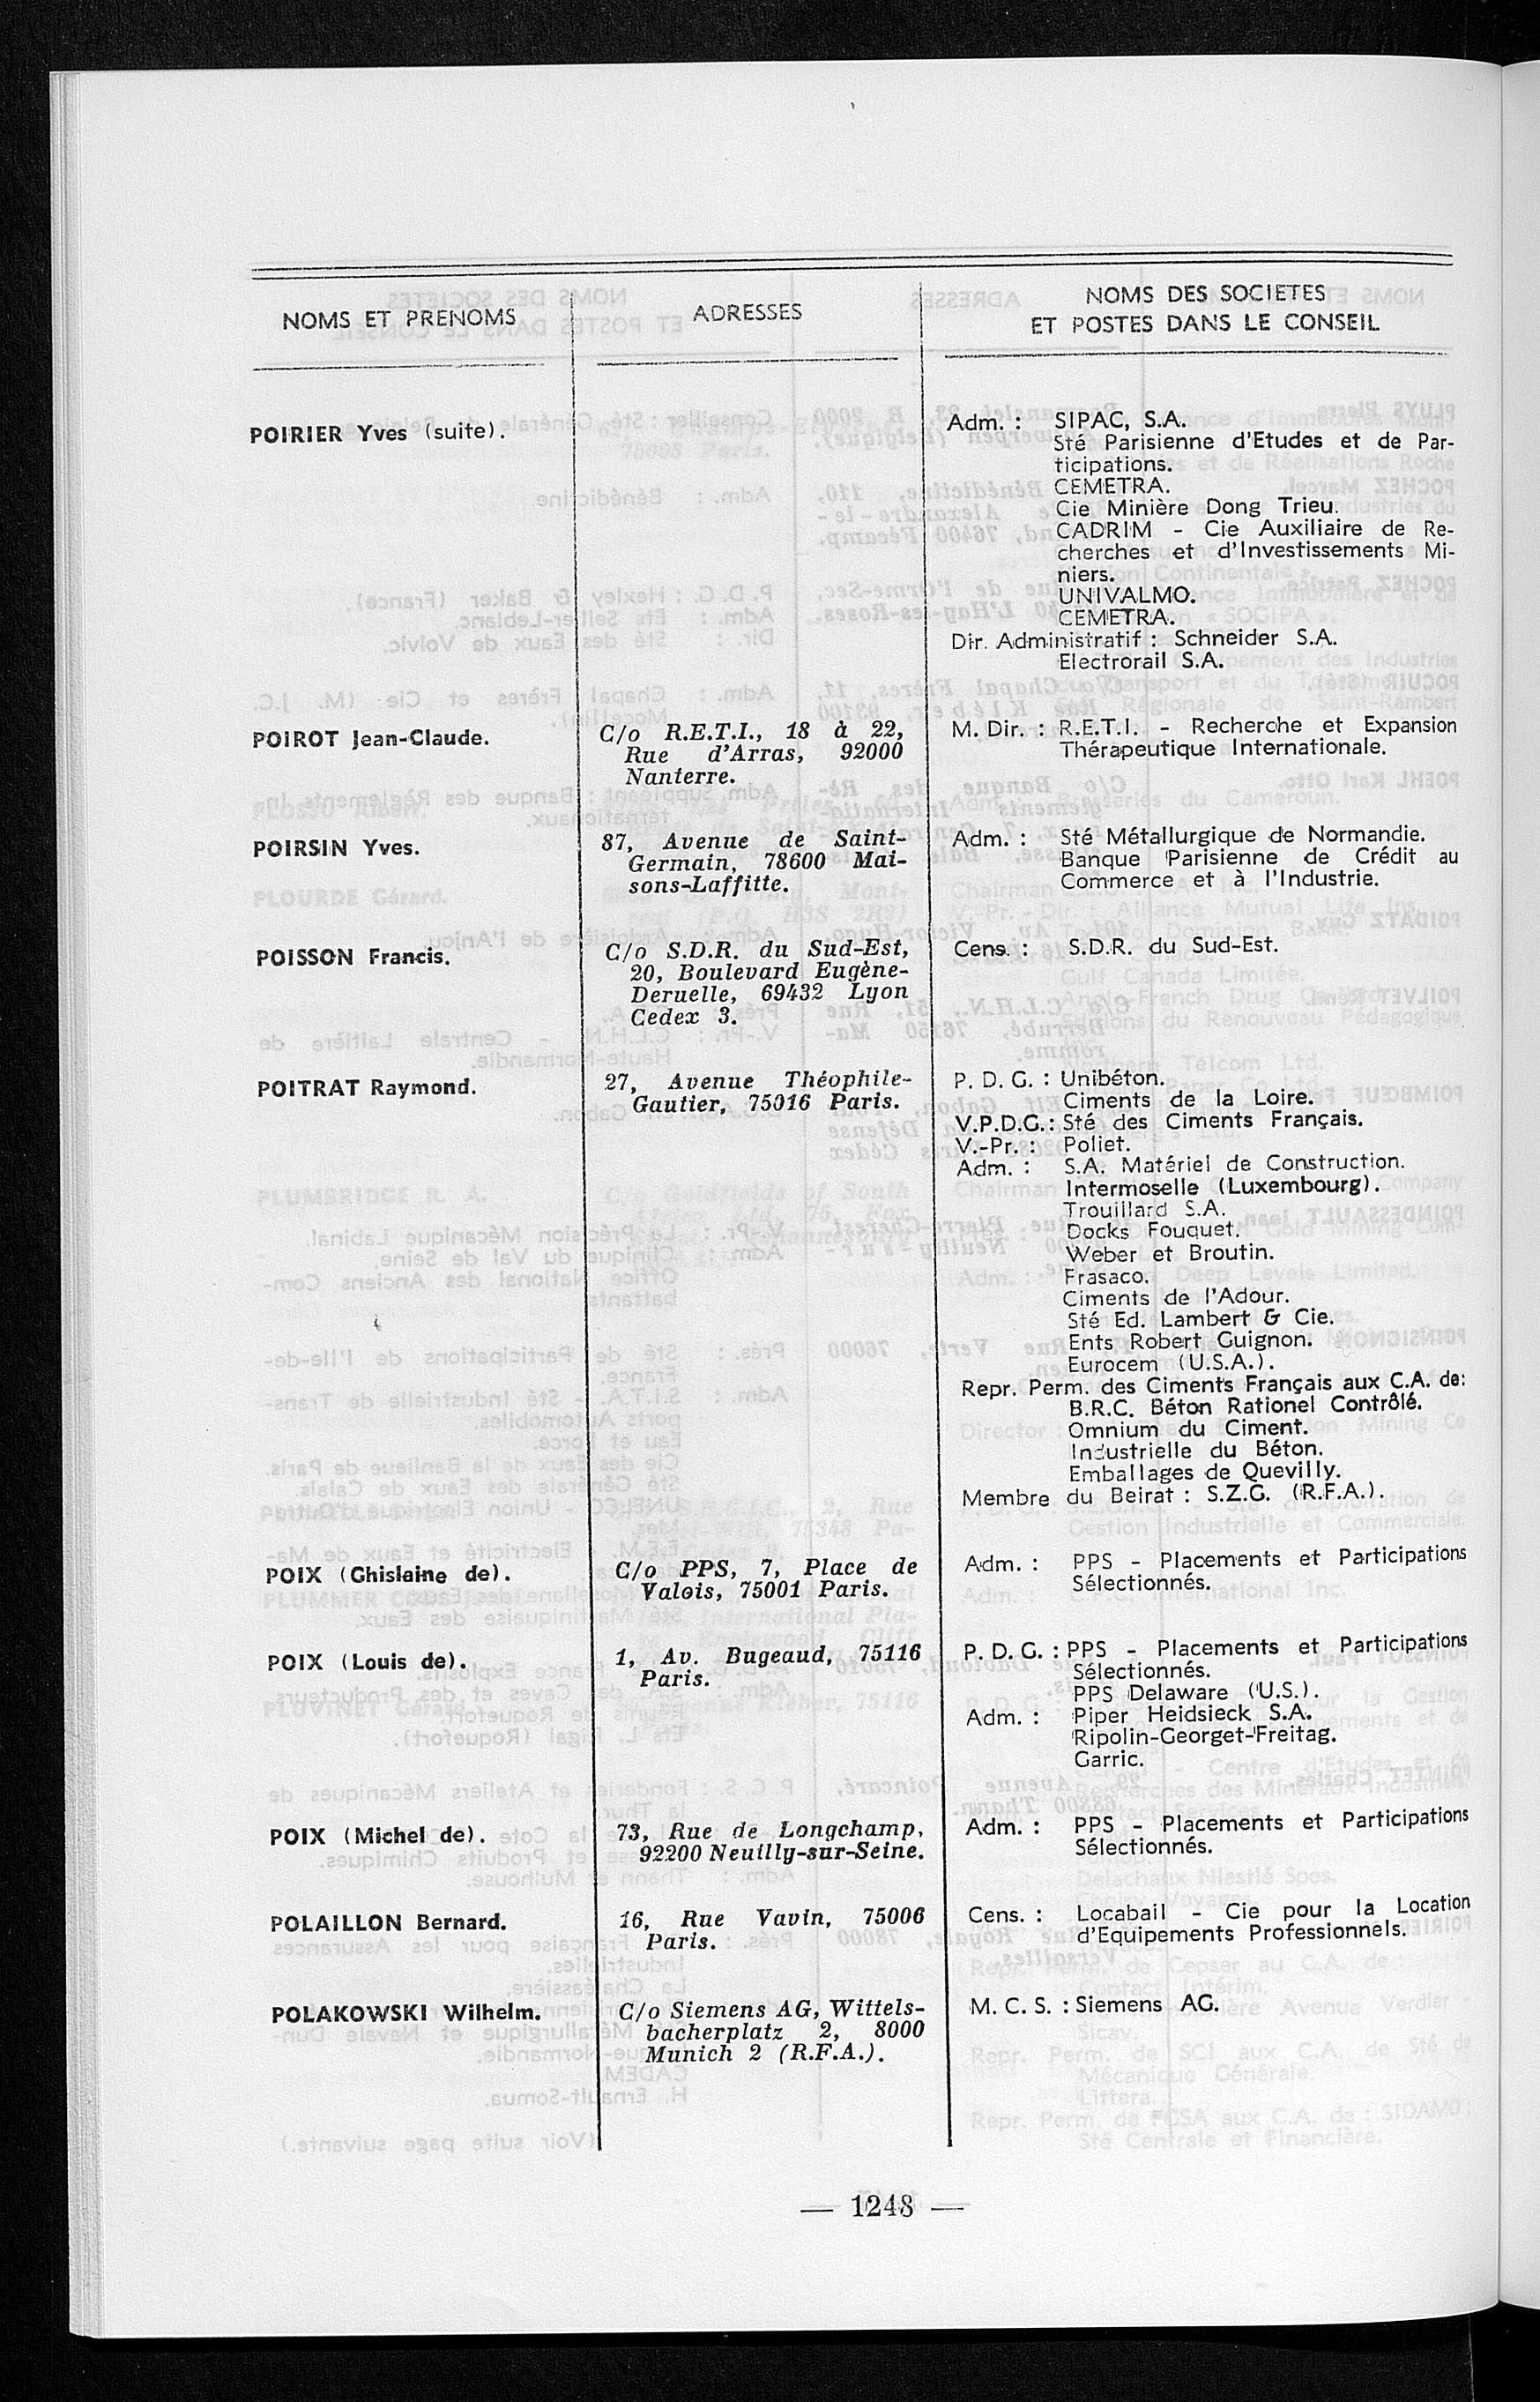 NOMS ET PRENOMS
ADRESSES
NOMS DES SOCIETES
ET POSTES DANS LE CONSEIL
POIRIER Yves (suite).
Adm. : SIPAC, S.A.
Sté Parisienne d'Etudes et de Par-
ticipations.
CEMETRA.
Cie Minière Dong Trieu.
CADRIM - Cie Auxiliaire de Re-
cherches et d'Investissements Mi-
niers.
UNIVALMO.
CEMETRA.
Dir. Administratif : Schneider S.A.
Electrorail S.A.
POIROT Jean-Claude.
C/o R.E.T.I., 18 à 22,
Rue d'Arras, 92000
Nanterre.
M. Dir. : R.E.T.I. - Recherche et Expansion
Thérapeutique Internationale.
POIRSIN Yves.
87, Avenue de Saint-
Germain, 78600 Mai-
sons-Laffitte.
Adm. : Sté Métallurgique de Normandie.
Banque Parisienne de Crédit au
Commerce et à l'Industrie.
POISSON Francis.
C/o S.D.R. du Sud-Est,
20, Boulevard Eugène-
Deruelle, 69432 Lyon
Cedex 3.
Cens. : S.D.R. du Sud-Est.
POITRAT Raymond.
27, Avenue Théophile-
Gautier, 75016 Paris.
P. D. G. : Unibéton.
Ciments de la Loire.
V.P.D.G.: Sté des Ciments Français.
V.-Pr. : Poliet.
Adm. : S.A. Matériel de Construction.
Intermoselle (Luxembourg).
Trouillard S.A.
Docks Fouquet.
Weber et Broutin.
Frasaco.
Ciments de l'Adour.
Sté Ed. Lambert & Cie.
Ents Robert Guignon.
Eurocem (U.S.A.).
Repr. Perm. des Ciments Français aux C.A. de:
B.R.C. Béton Rationel Contrôlé.
Omnium du Ciment.
Industrielle du Béton.
Emballages de Quevilly.
Membre du Beirat : S.Z.G. (R.F.A.).
POIX (Ghislaine de).
C/o PPS, 7, Place de
Valois, 75001 Paris.
Adm. : PPS - Placements et Participations
Sélectionnés.
POIX (Louis de).
1, Av. Bugeaud, 75116
Paris.
P. D. G. : PPS - Placements et Participations
Sélectionnés.
PPS Delaware (U.S.).
Adm. : Piper Heidsieck S.A.
Ripolin-Georget-Freitag.
Garric.
POIX (Michel de).
73, Rue de Longchamp,
92200 Neuilly-sur-Seine.
Adm. : PPS - Placements et Participations
Sélectionnés.
POLAILLON Bernard.
16, Rue Vavin, 75006
Paris.
Cens. : Locabail - Cie pour la Location
d'Equipements Professionnels.
POLAKOWSKI Wilhelm.
C/o Siemens AG, Wittels-
bacherplatz 2, 8000
Munich 2 (R.F.A.).
M. C. S. : Siemens AG.
— 1248 —